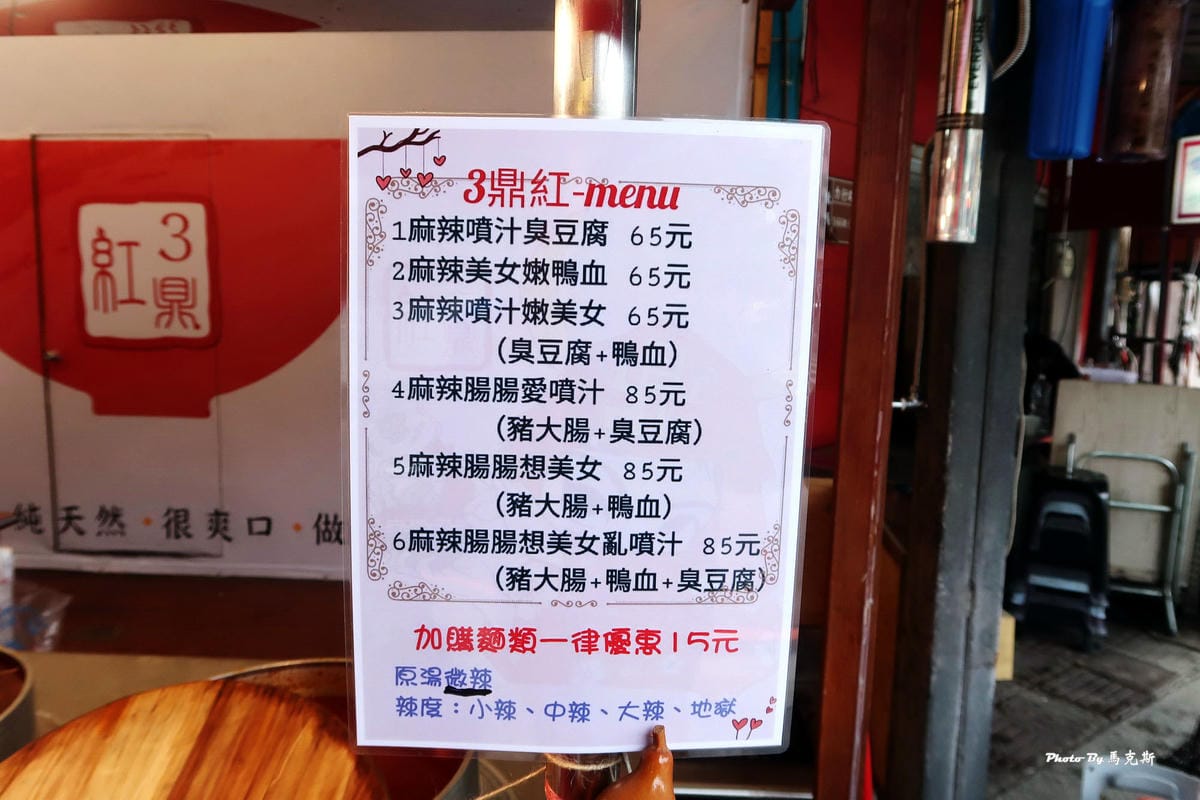 3鼎紅-menu
1麻辣噴汁臭豆腐 65元
2麻辣美女嫩鴨血 65元
3麻辣噴汁嫩美女 65元
(臭豆腐+鴨血)
4麻辣腸腸愛噴汁 85元
(豬大腸+臭豆腐)
5麻辣腸腸想美女 85元
(豬大腸+鴨血)
6麻辣腸腸想美女亂噴汁 85元
(豬大腸+鴨血+臭豆腐)
加購麵類一律優惠15元
原湯微辣
辣度：小辣、中辣、大辣、地獄
3鼎紅
純天然・很爽口・做
EVERPURE
Photo By 馬克斯